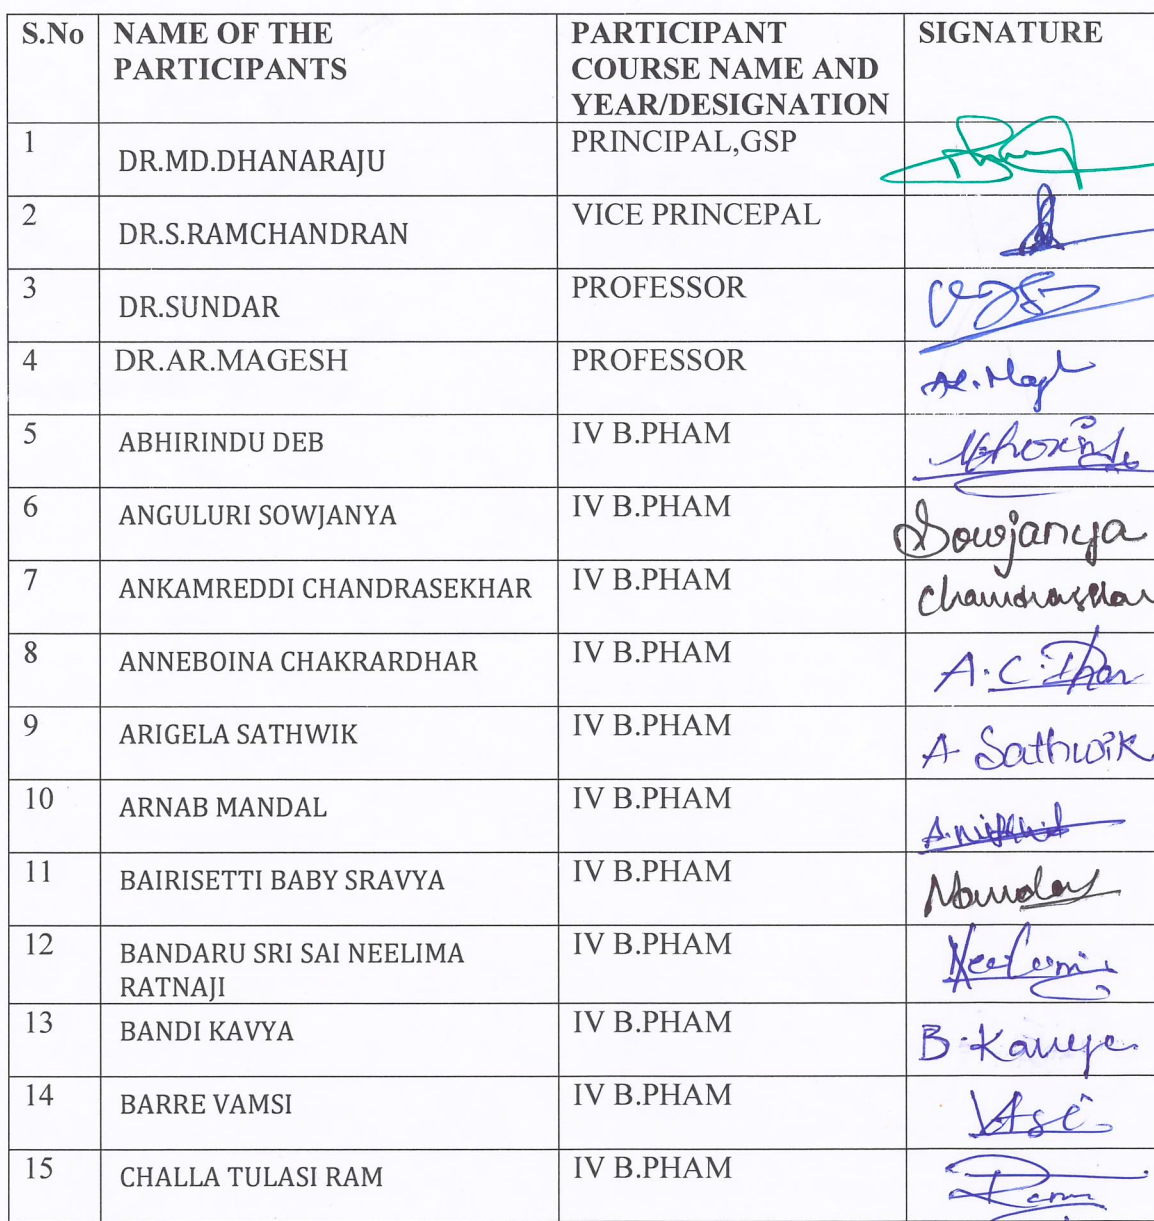 S.No NAME OF THE PARTICIPANTS PARTICIPANT COURSE NAME AND YEAR/DESIGNATION SIGNATURE
1 DR.MD.DHANARAJU PRINCIPAL,GSP
2 DR.S.RAMCHANDRAN VICE PRINCEPAL
3 DR.SUNDAR PROFESSOR
4 DR.AR.MAGESH PROFESSOR
5 ABHIRINDU DEB IV B.PHAM
6 ANGULURI SOWJANYA IV B.PHAM Sowjanya
7 ANKAMREDDI CHANDRASEKHAR IV B.PHAM
8 ANNEBOINA CHAKRARDHAR IV B.PHAM A.C.Dhar
9 ARIGELA SATHWIK IV B.PHAM A Sathwik
10 ARNAB MANDAL IV B.PHAM
11 BAIRISETTI BABY SRAVYA IV B.PHAM
12 BANDARU SRI SAI NEELIMA
RATNAJI IV B.PHAM
13 BANDI KAVYA IV B.PHAM B.Kavya
14 BARRE VAMSI IV B.PHAM
15 CHALLA TULASI RAM IV B.PHAM